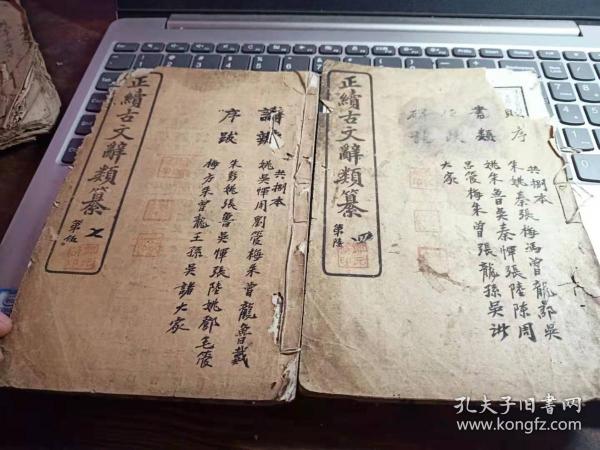 正續古文辭類纂
第伍
序跋
共捌本
姚吳惲周劉管梅朱曾龍魯戴
朱彭姚張魯吳惲張陸姚鄧毛管
梅方朱曾龍王孫吳諸大家
正續古文辭類纂
第陸
四
書類
贈序
共捌本
朱姚秦張梅馮曾龍鄭吳
姚朱魯吳秦惲張陸陳周
呂管梅朱曾張龍孫吳諸
大家
孔夫子旧书网
www.kongfz.com